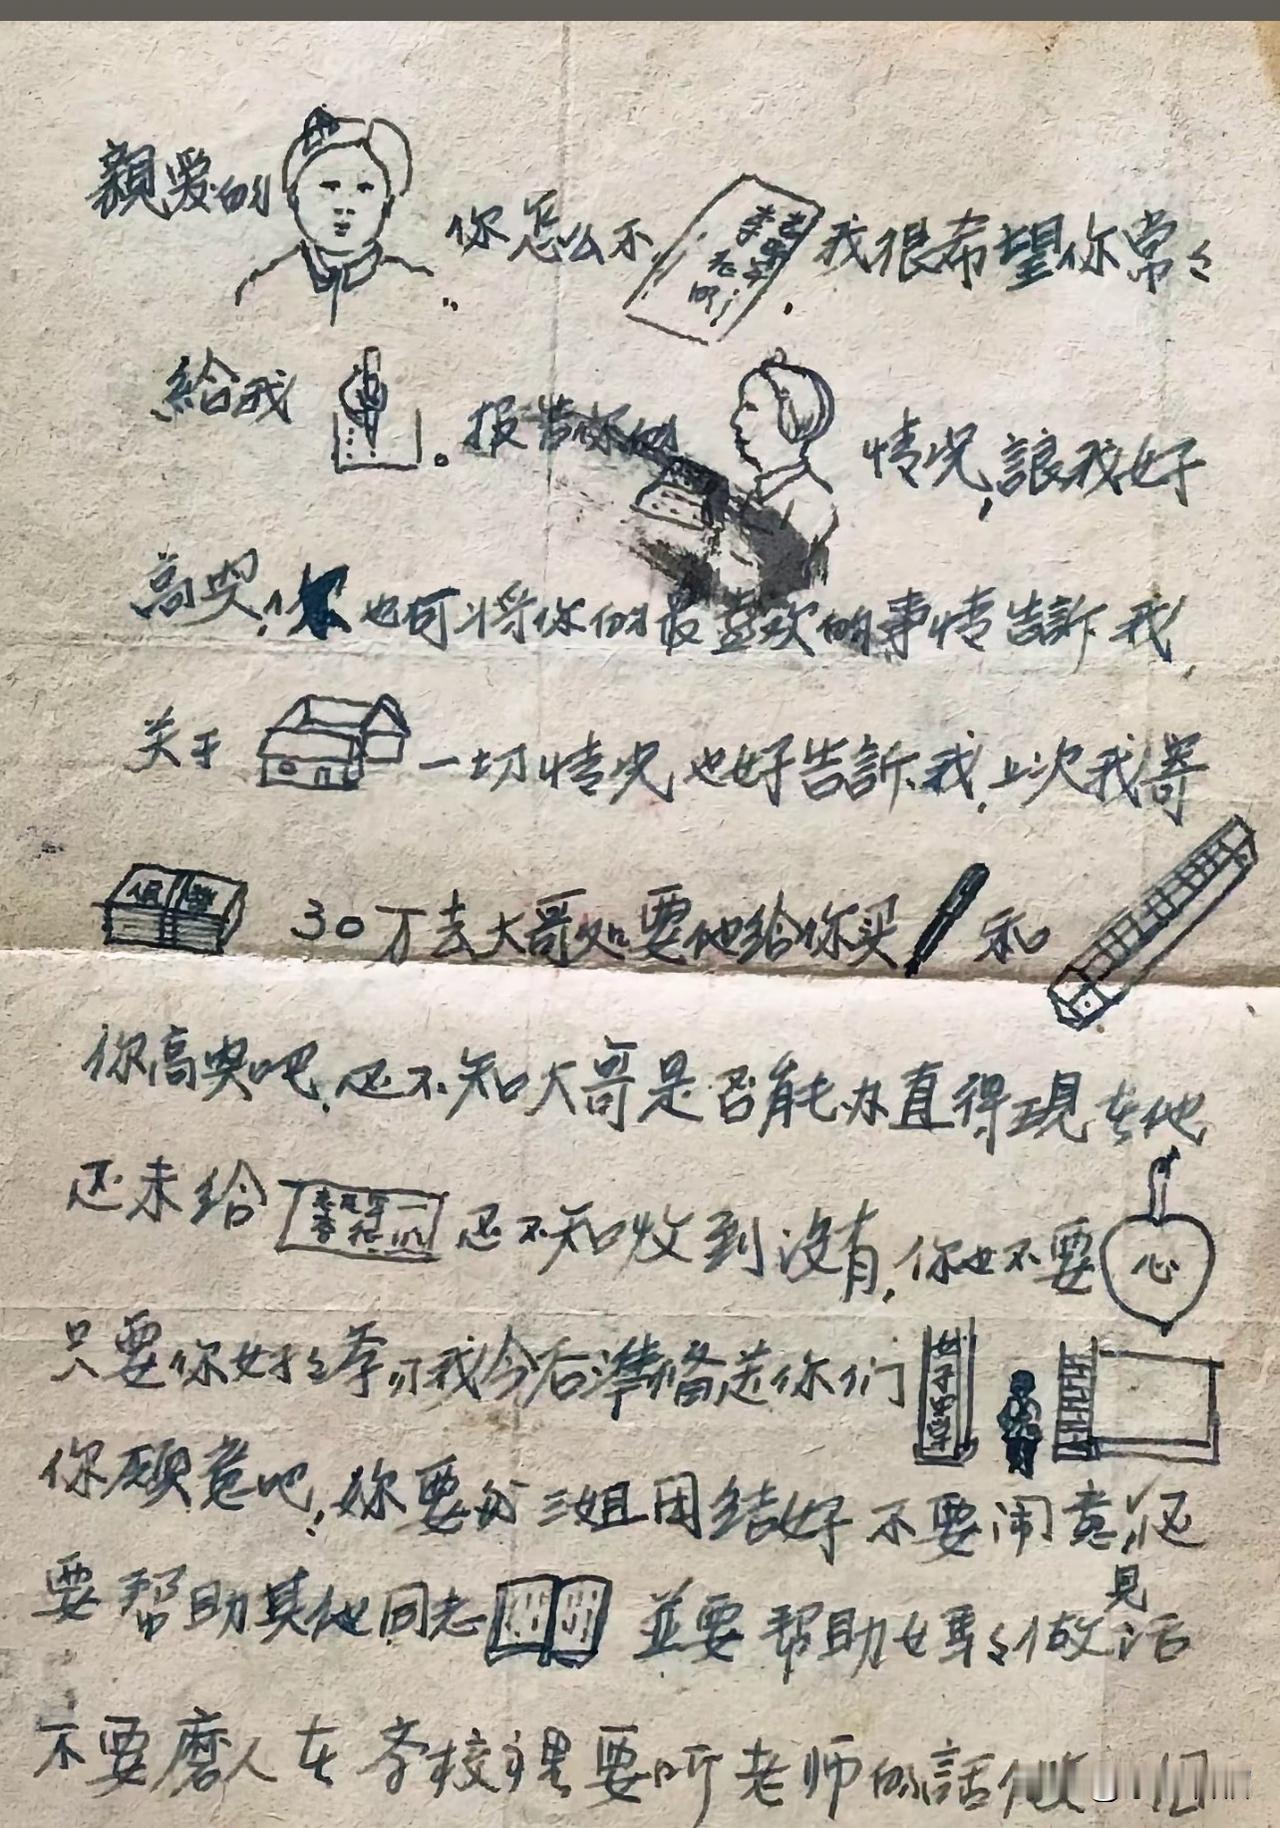 親爱的 你怎么不 我很希望你常々
給我 。报告你的 情况,讓我好
高兴,你也可将你的最喜欢的事情告訴我,
关于 一切情况也好告訴我,上次我寄
30万去大哥处要他給你买 和
你高兴吧,还不知大哥是否能办直得現在他
还未给 还不知收到没有,你也不要 心
只要你好好学习我今后準備送你们
你願意吧,你要与三姐团结好不要闹意見还
要帮助其他同志 並要帮助妈々做活
不要磨人在学校里要听老师的話做